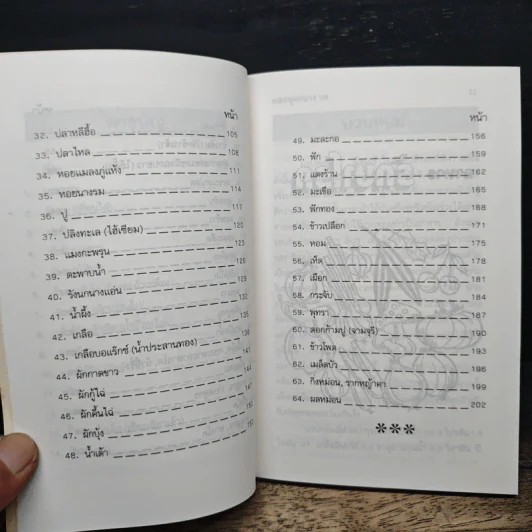 หน้า
32. ปลาหลีฮื้อ 105
33. ปลาไหล 108
34. หอยแมลงภู่แห้ง 111
35. หอยนางรม 114
36. ปู 117
37. ปลิงทะเล (ไฮ้เซียม) 120
38. แมงกะพรุน 123
39. ตะพาบน้ำ 126
40. รังนกนางแอ่น 129
41. น้ำผึ้ง 132
42. เกลือ 135
43. เกลือบอแร๊กซ์ (น้ำประสานทอง) 138
44. ผักกาดขาว 141
45. ผักกู้ไฉ่ 144
46. ผักตื้นไฉ่ 147
47. ผักบุ้ง
48. น้ำเต้า
หน้า
49. มะละกอ 156
50. ฟัก 159
51. แตงร้าน 162
52. มะเขือ 165
53. ฟักทอง 168
54. ข้าวเปลือก 171
55. หอม 175
56. เห็ด 178
57. เผือก 181
58. กระจับ 184
59. พุทรา 187
60. ดอกก้ามปู (จามจุรี) 190
61. ข้าวโพด 193
62. เมล็ดบัว 196
63. กิ่งหม่อน, รากหญ้าคา 199
64. ผลหม่อน 202
***